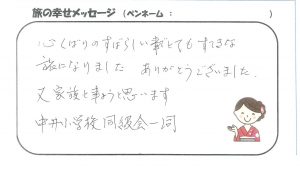 旅の幸せメッセージ (ペンネーム: )
心くばりのすばらしい宿でとてもすてきな
旅になりました ありがとうございました.
又家族と来ようと思います
中井小学校同級会一同